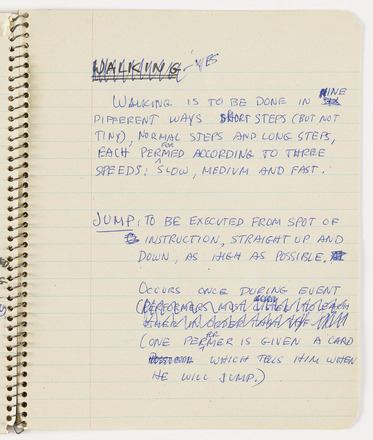 WALKING - YES
WALKING IS TO BE DONE IN NINE
DIFFERENT WAYS SHORT STEPS (BUT NOT
TINY), NORMAL STEPS AND LONG STEPS,
EACH PERFORMED ACCORDING TO THREE
SPEEDS: SLOW, MEDIUM AND FAST.
JUMP: TO BE EXECUTED FROM SPOT OF
INSTRUCTION, STRAIGHT UP AND
DOWN, AS HIGH AS POSSIBLE.
OCCURS ONCE DURING EVENT
(PERFORMERS MUST LISTEN TO EACH
OTHER IN ORDER
(ONE PERFORMER IS GIVEN A CARD
WHICH TELLS HIM WHEN
HE WILL JUMP.)